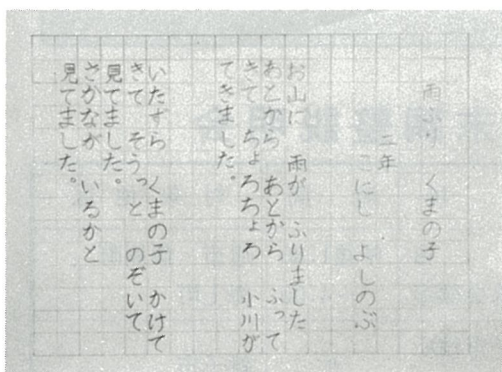 雨ふり くまの子
二年
こにし よしのぶ
お山に 雨が ふりました
あとから あとから ふって
きて ちょろちょろ 小川が
てきました。
いたずら くまの子 かけて
きて そうっと のぞいて
見てました。
さかなが いるかと
見てました。